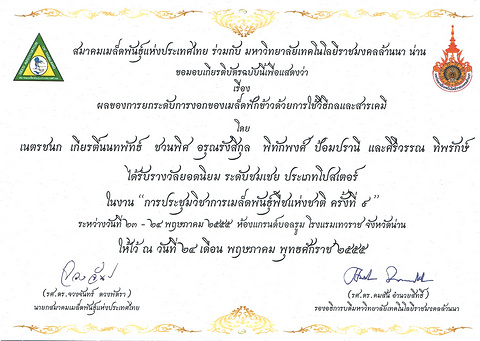 สมาคมเมล็ดพันธุ์แห่งประเทศไทย ร่วมกับ มหาวิทยาลัยเทคโนโลยีราชมงคลล้านนา น่าน
ขอมอบเกียรติบัตรฉบับนี้เพื่อแสดงว่า
เรื่อง
ผลของการยกระดับการงอกของเมล็ดฟักข้าวด้วยการใช้วิธีกลและสารเคมี
โดย
เนตรชนก เกียรตินนทพัทธ์ ชวนพิศ อรุณรังสิกุล พิทักพงศ์ ป้อมปราณี และศิริวรรณ ทิพรักษ์
ได้รับรางวัลยอดนิยม ระดับชมเชย ประเภทโปสเตอร์
ในงาน “การประชุมวิชาการเมล็ดพันธุ์พืชแห่งชาติ ครั้งที่ ๙ ”
ระหว่างวันที่ ๒๓ - ๒๔ พฤษภาคม ๒๕๕๕ ห้องแกรนด์บอลรูม โรงแรมเทวราช จังหวัดน่าน
ให้ไว้ ณ วันที่ ๒๔ เดือน พฤษภาคม พุทธศักราช ๒๕๕๕
(รศ.ดร.จวงจันทร์ ดวงพัตรา)
นายกสมาคมเมล็ดพันธุ์แห่งประเทศไทย
(รศ.ดร.คมสัน อำนวยสิทธิ์)
รองอธิการบดีมหาวิทยาลัยเทคโนโลยีราชมงคลล้านนา